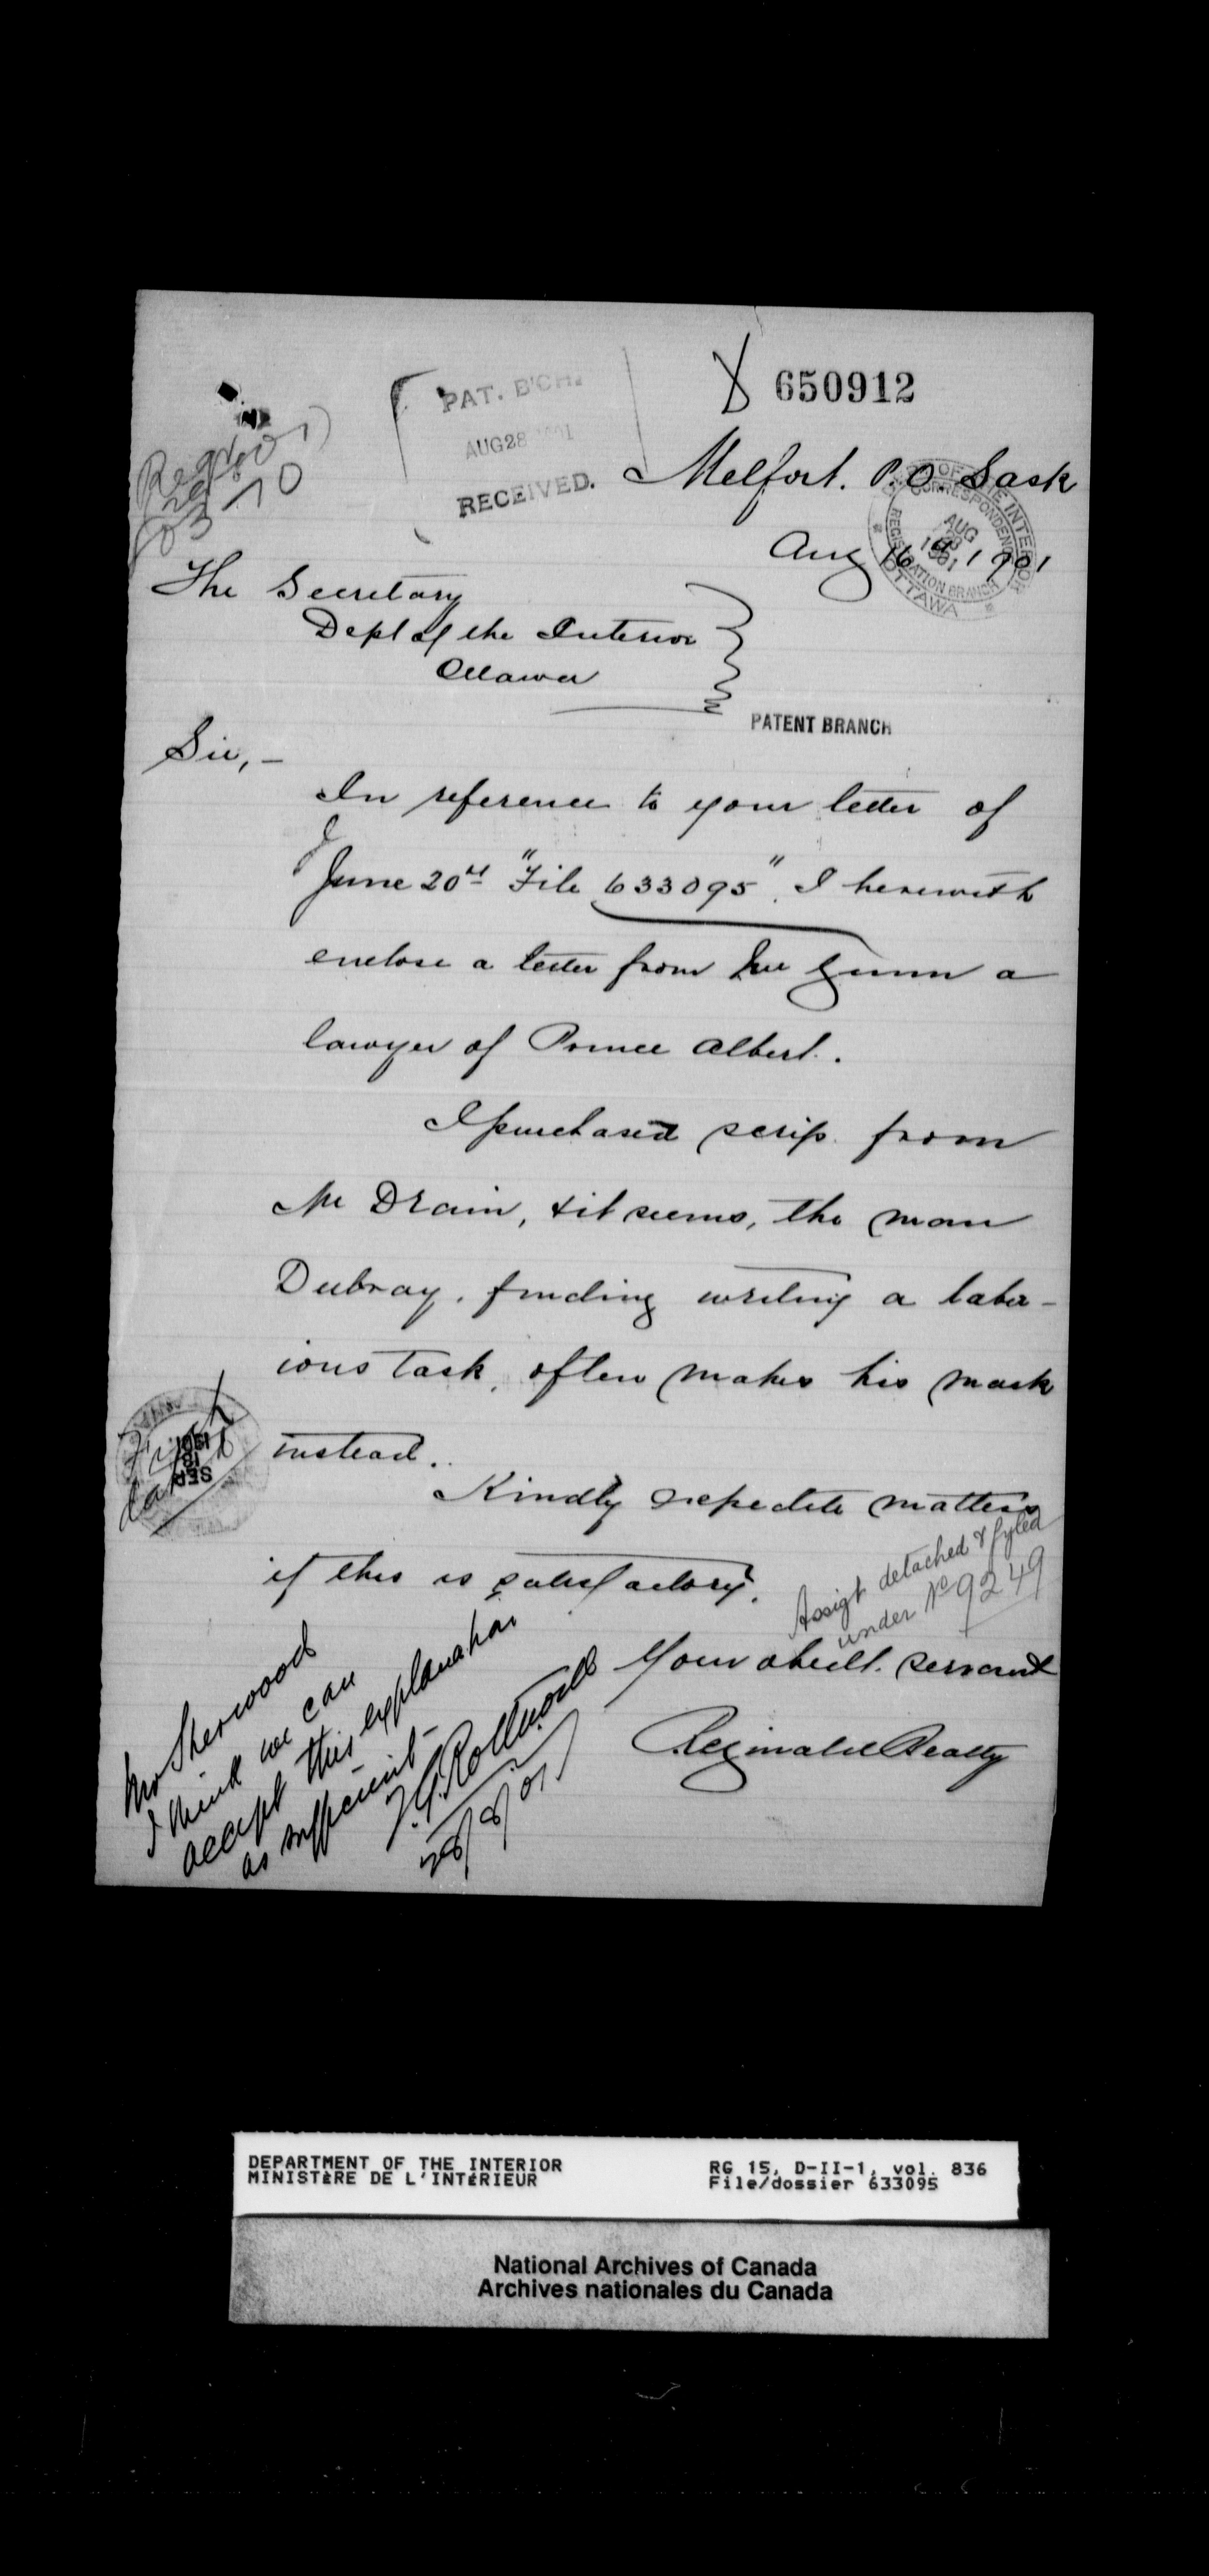 650912
PAT. B'CH.
AUG 28 1901
RECEIVED.
Melfort. P.O. Sask
Aug 16th 1901
DEPT OF THE INTERIOR
CORRESPONDENCE
AUG
28
1901
REGISTRATION BRANCH
OTTAWA
The Secretary
Dept of the Interior
Ottawa
PATENT BRANCH
Sir, –
In reference to your letter of
June 20th "File 633095". I herewith
enclose a letter from Mr Gunn a
lawyer of Prince Albert.
I purchased scrip from
Mr Drain, & it seems, the man
Dubray, finding writing a labor-
ious task, often makes his mark
instead.
SEP
1901
Kindly expedite matters
if this is satisfactory.
Assigt detached & fyled
under No 9249
Your obedt. servant
Reginald Beatty
Mr Sherwood
I think we can
accept this explanation
as sufficient –
28/8/01
DEPARTMENT OF THE INTERIOR
MINISTÈRE DE L'INTÉRIEUR
RG 15, D-II-1, vol. 836
File/dossier 633095
National Archives of Canada
Archives nationales du Canada